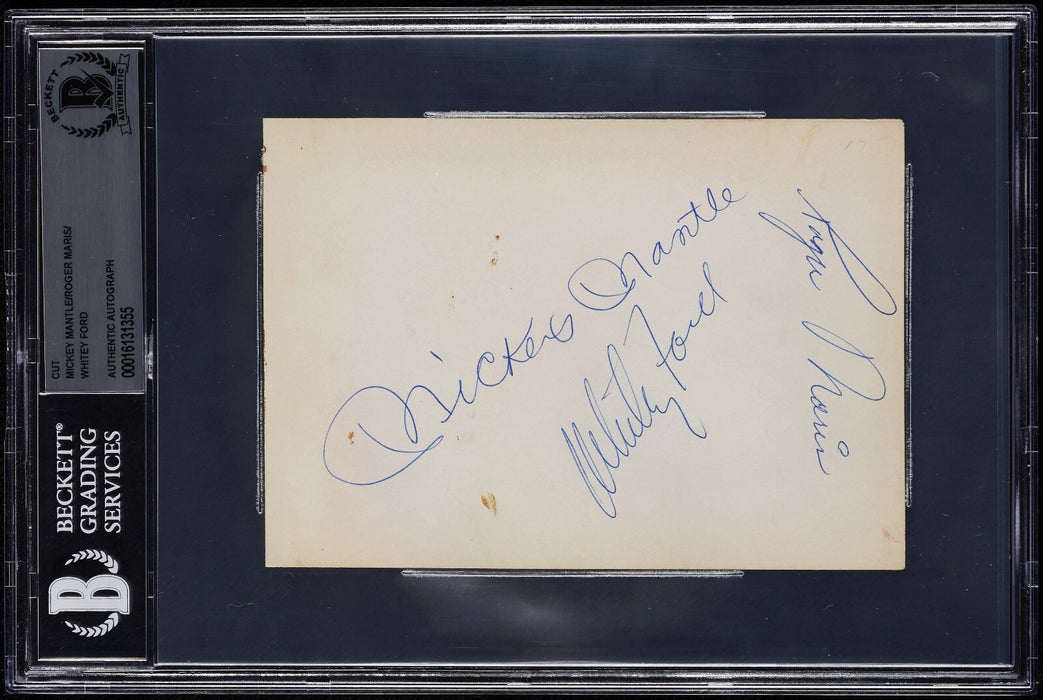 BECKETT
B
AUTHENTIC
CUT
MICKEY MANTLE/ROGER MARIS/
WHITEY FORD
AUTHENTIC AUTOGRAPH
00016131355
BECKETT®
GRADING
SERVICES
B
Mickey Mantle
Whitey Ford
Roger Maris